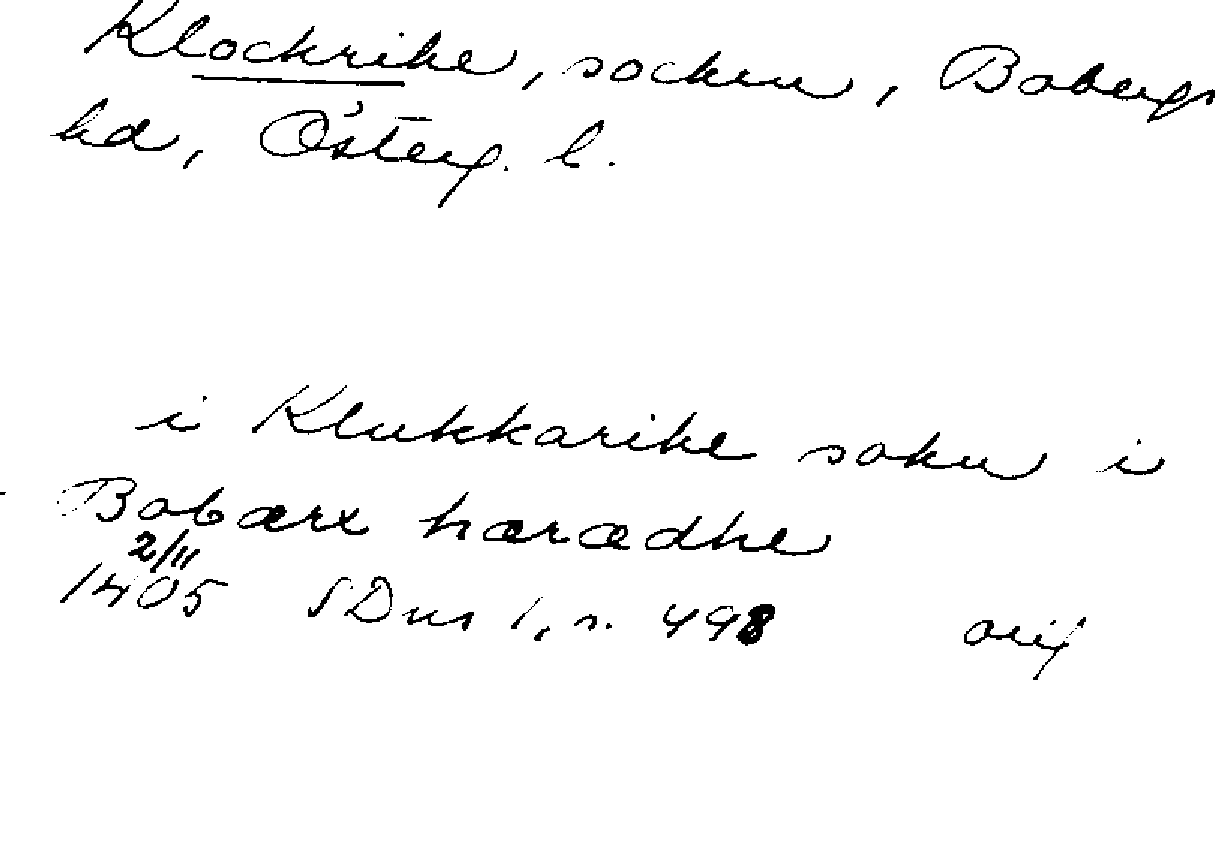 Klockrike, socken, Bobergs
hd, Österg. l.
i Klukkarike sokn i
Bobærx hærædhe
2/11
1405 SDns 1, s. 498 orig